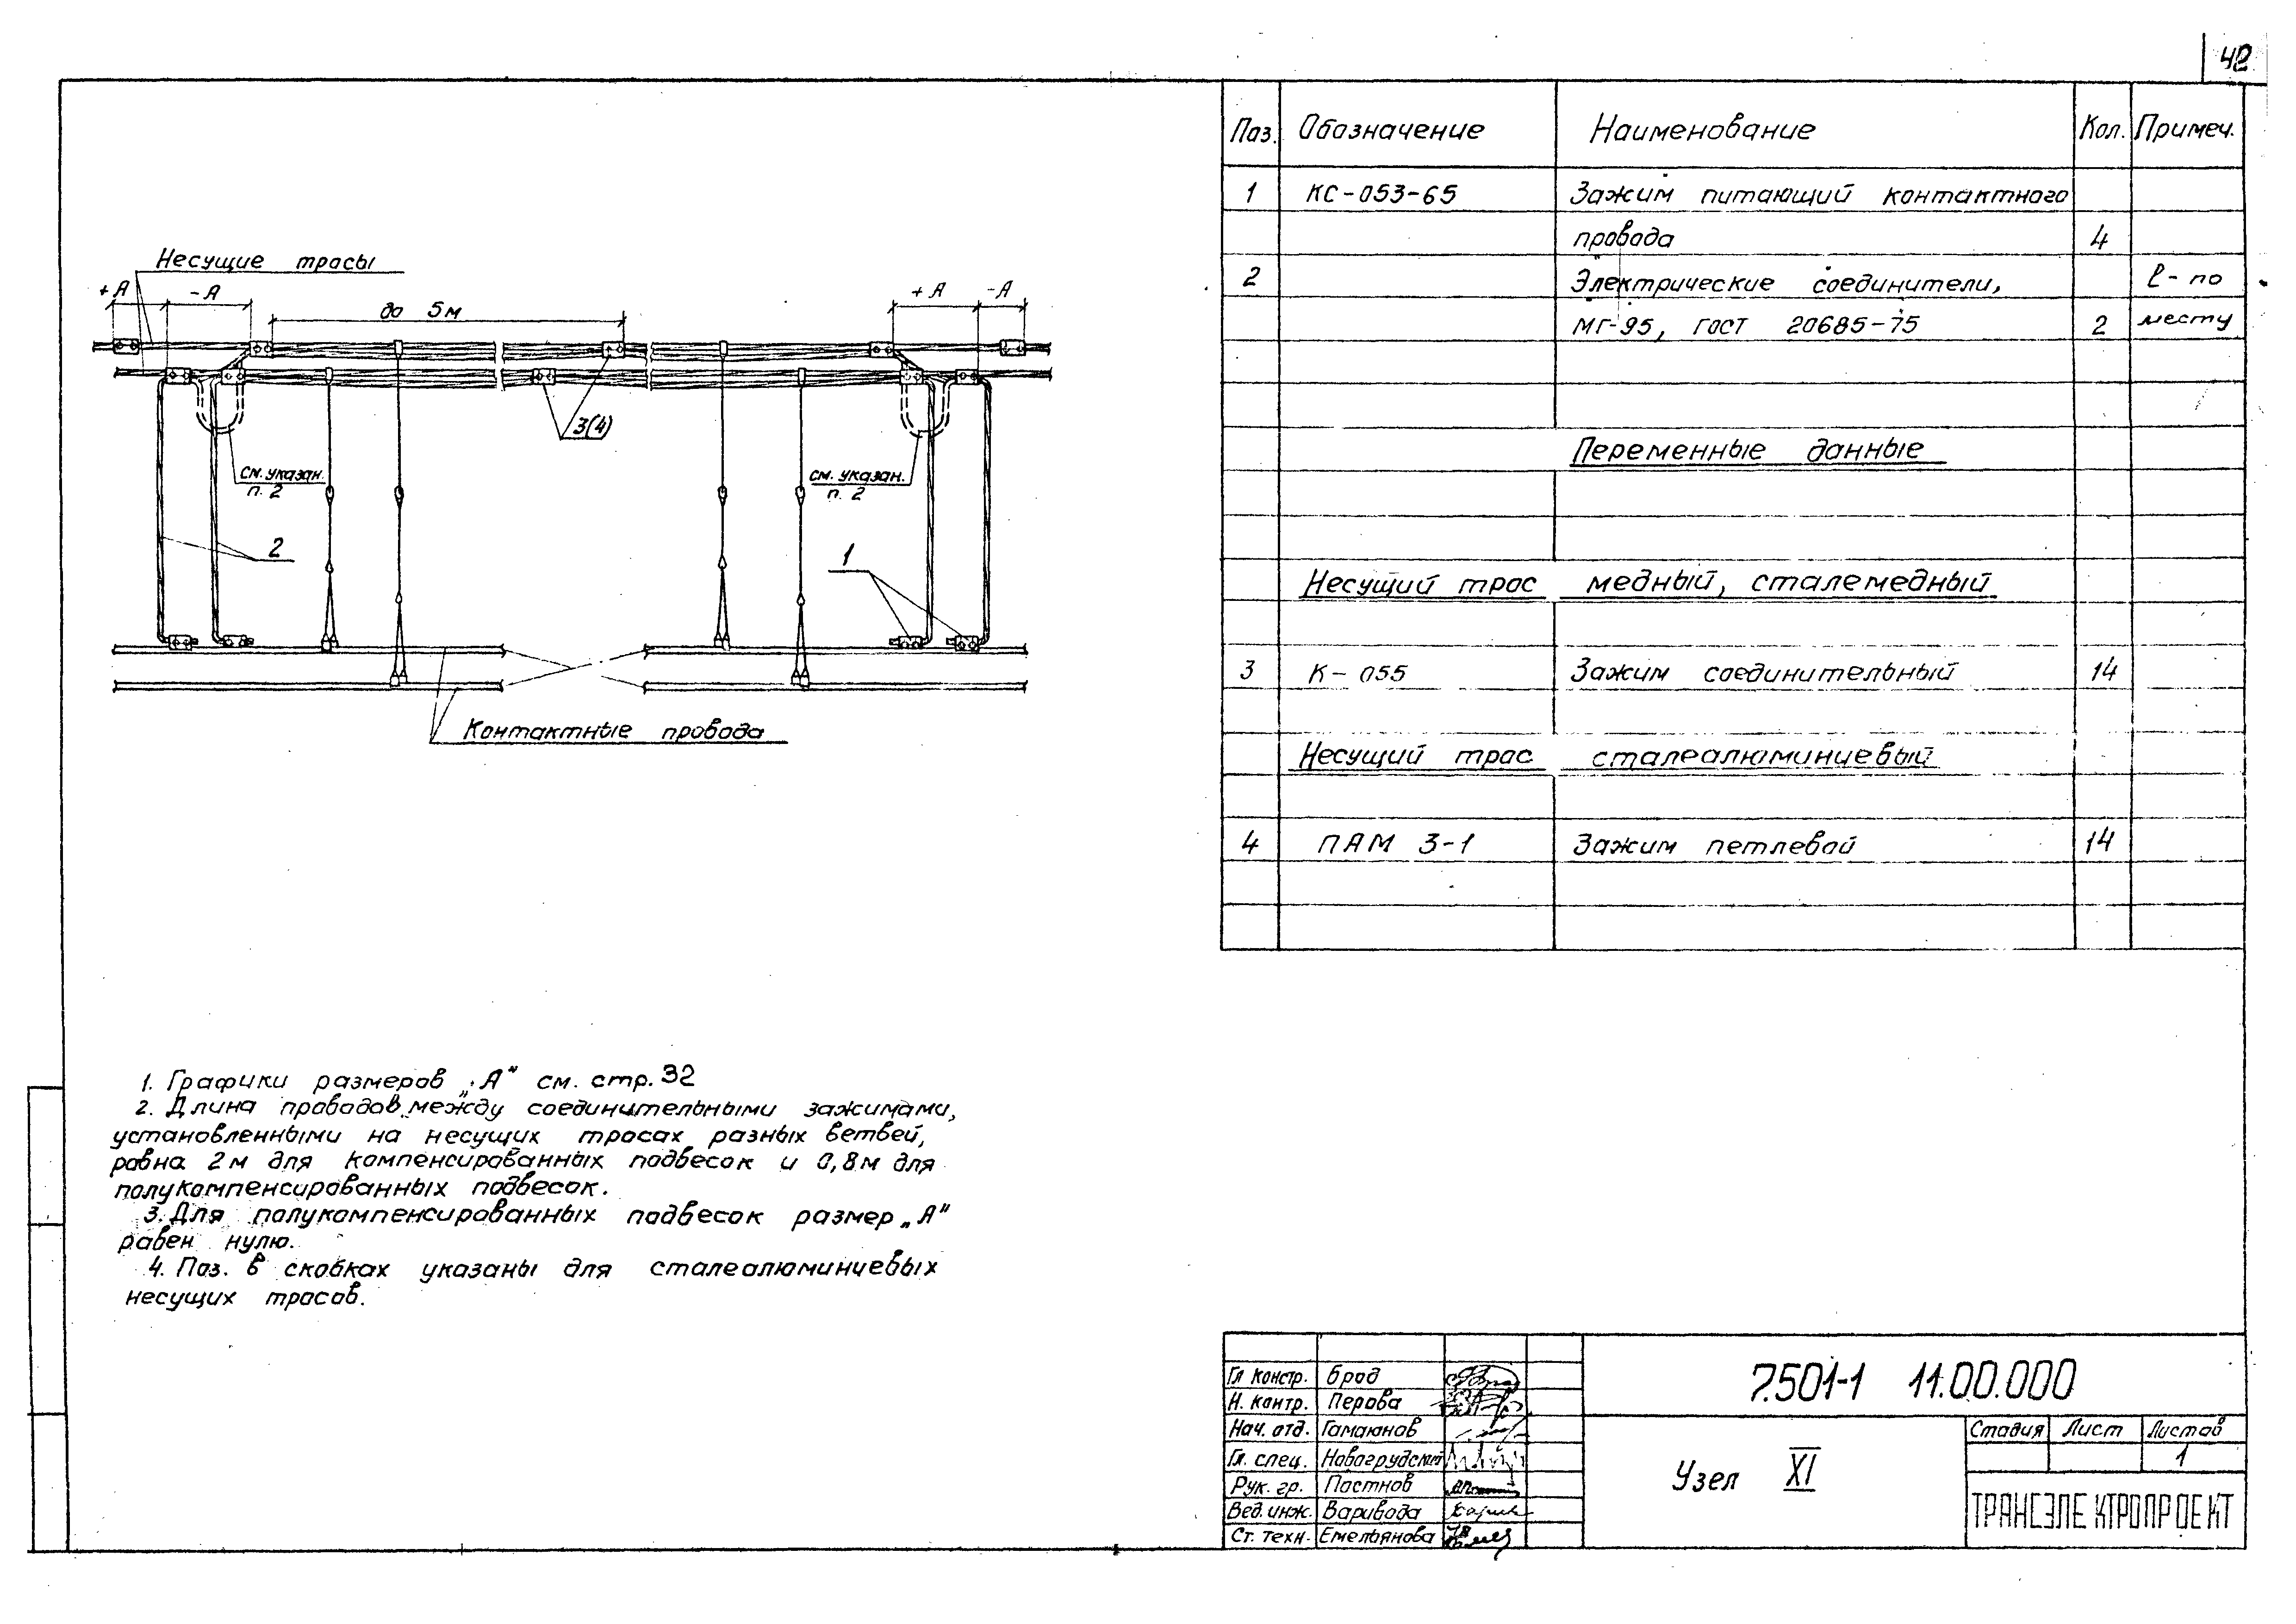 42
Несущие тросы
+А -А до 5м +А -А
3(4)
см. указан. п. 2
см. указан. п. 2
2
1
Контактные провода
Поз. Обозначение Наименование Кол. Примеч.
1 КС-053-65 Зажим питающий контактного
провода 4
2 Электрические соединители, ℓ- по
МГ-95, ГОСТ 20685-75 2 месту
Переменные данные
Несущий трос медный, сталемедный
3 К-055 Зажим соединительный 14
Несущий трос сталеалюминиевый
4 ПАМ 3-1 Зажим петлевой 14
1. Графики размеров „А“ см. стр. 32
2. Длина проводов между соединительными зажимами,
установленными на несущих тросах разных ветвей,
равна 2м для компенсированных подвесок и 0,8м для
полукомпенсированных подвесок.
3. Для полукомпенсированных подвесок размер „А“
равен нулю.
4. Поз. в скобках указаны для сталеалюминиевых
несущих тросов.
Гл констр. Брод
Н. контр. Перова
Нач. отд. Гамаюнов
Гл. спец. Новогрудский
Рук. гр. Постнов
Вед. инж. Варивода
Ст. техн. Емельянова
7.501-1 11.00.000
Узел XI
Стадия Лист Листов
1
ТРАНСЭЛЕКТРОПРОЕКТ